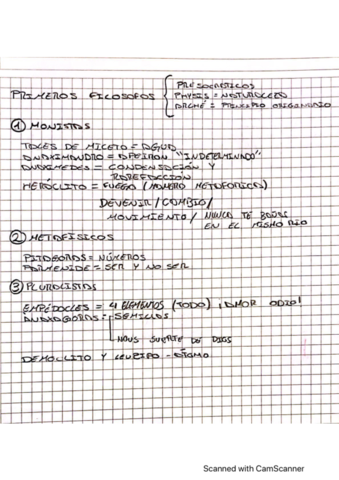 PRESOCRÁTICOS
PRIMEROS FILOSOFOS { PHYSIS = NATURALEZA
ARCHÉ = PRINCIPIO ORIGINARIO
① MONISTAS
TALES DE MILETO = AGUA
ANAXIMANDRO = APEIRON "INDETERMINADO"
ANAXIMEDES = CONDENSACIÓN Y
RAREFACCION
HERÁCLITO = FUEGO (MANERA METAFORICA)
DEVENIR / CAMBIO /
MOVIMIENTO / NUNCA TE BAÑAS
EN EL MISMO RIO
② METAFISICOS
PITAGORAS = NÚMEROS
PARMENIDE = SER Y NO SER
③ PLURALISTAS
EMPÉDOCLES = 4 ELEMENTOS (TODO) ¡AMOR ODIO!
ANAXAGORAS = SEMILLAS
NOUS SUERTE DE DIOS
DEMOCLITO Y LEUSIPO - ÁTOMO
Scanned with CamScanner